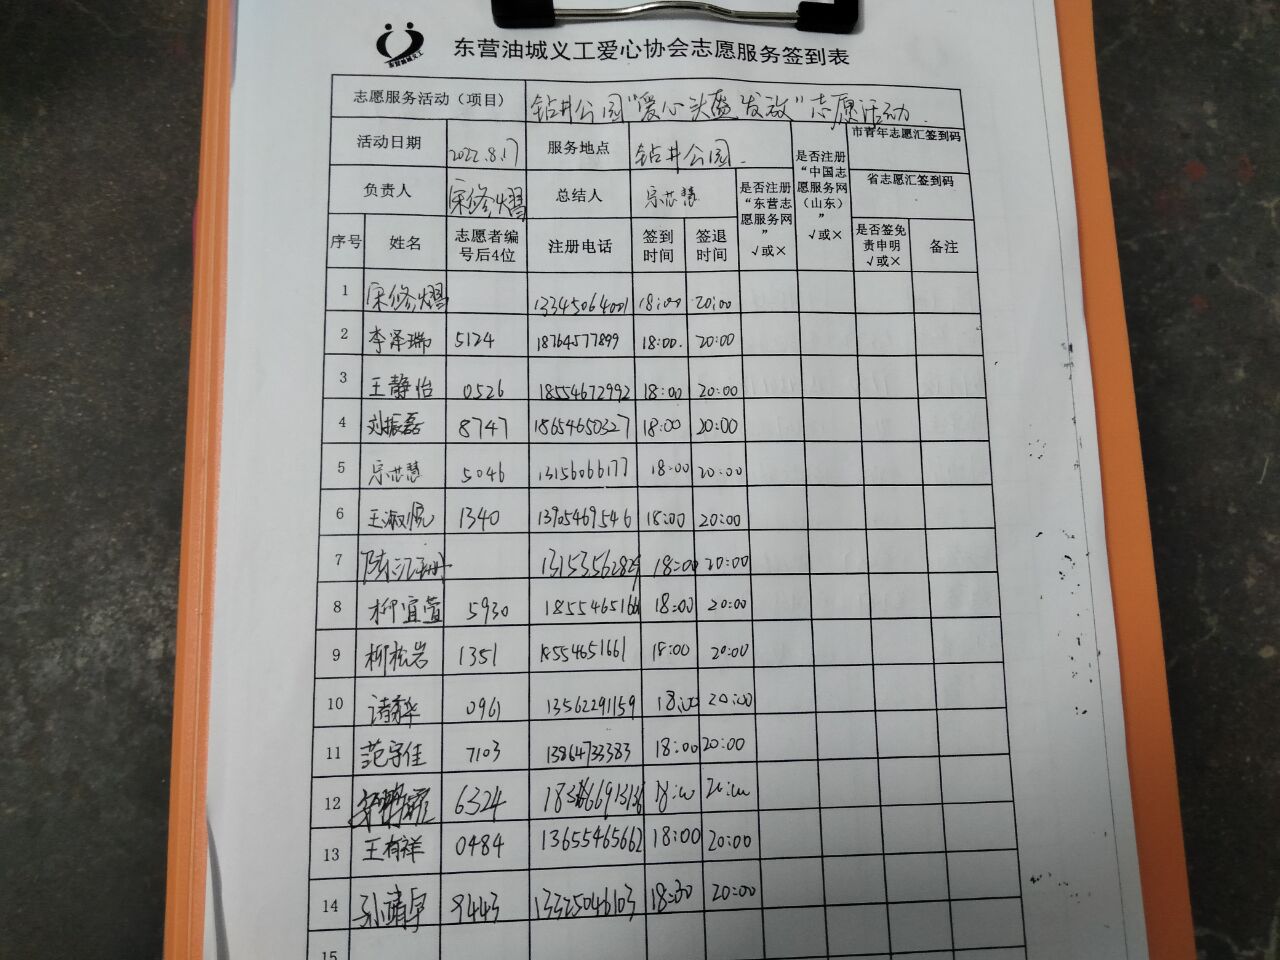 东营油城义工
东营油城义工爱心协会志愿服务签到表
志愿服务活动（项目） 钻井公园"爱心头盔发放"志愿活动.
活动日期 2022.8.17 服务地点 钻井公园. 是否注册“中国志愿服务网（山东）”√或× 市青年志愿汇签到码
负责人 宋修熠 总结人 宗芯慧 是否注册“东营志愿服务网”√或× 省志愿汇签到码
序号 姓名 志愿者编号后4位 注册电话 签到时间 签退时间 是否签免责申明√或× 备注
1 宋修熠 13345064001 18:00 20:00
2 李泽瑞 5124 18764577899 18:00. 20:00
3 王静怡 0526 18554672992 18:00 20:00
4 刘振磊 8747 15654650327 18:00 20:00
5 宗芯慧 5046 13156066177 18:00 20:00
6 王淑悦 1340 13905469546 18:00 20:00
7 18:00 20:00
8 柳宜萱 5930 1855465166 18:00 20:00
9 柳松岩 1351 18554651661 18:00 20:00
10 0961 13562291159 18:00 20:00
11 范守佳 7103 13864733383 18:00 20:00
12 6324 18:00 20:00
13 王有祥 0484 13655465662 18:00 20:00
14 孙靖宇 9443 13325046103 18:30 20:00
15